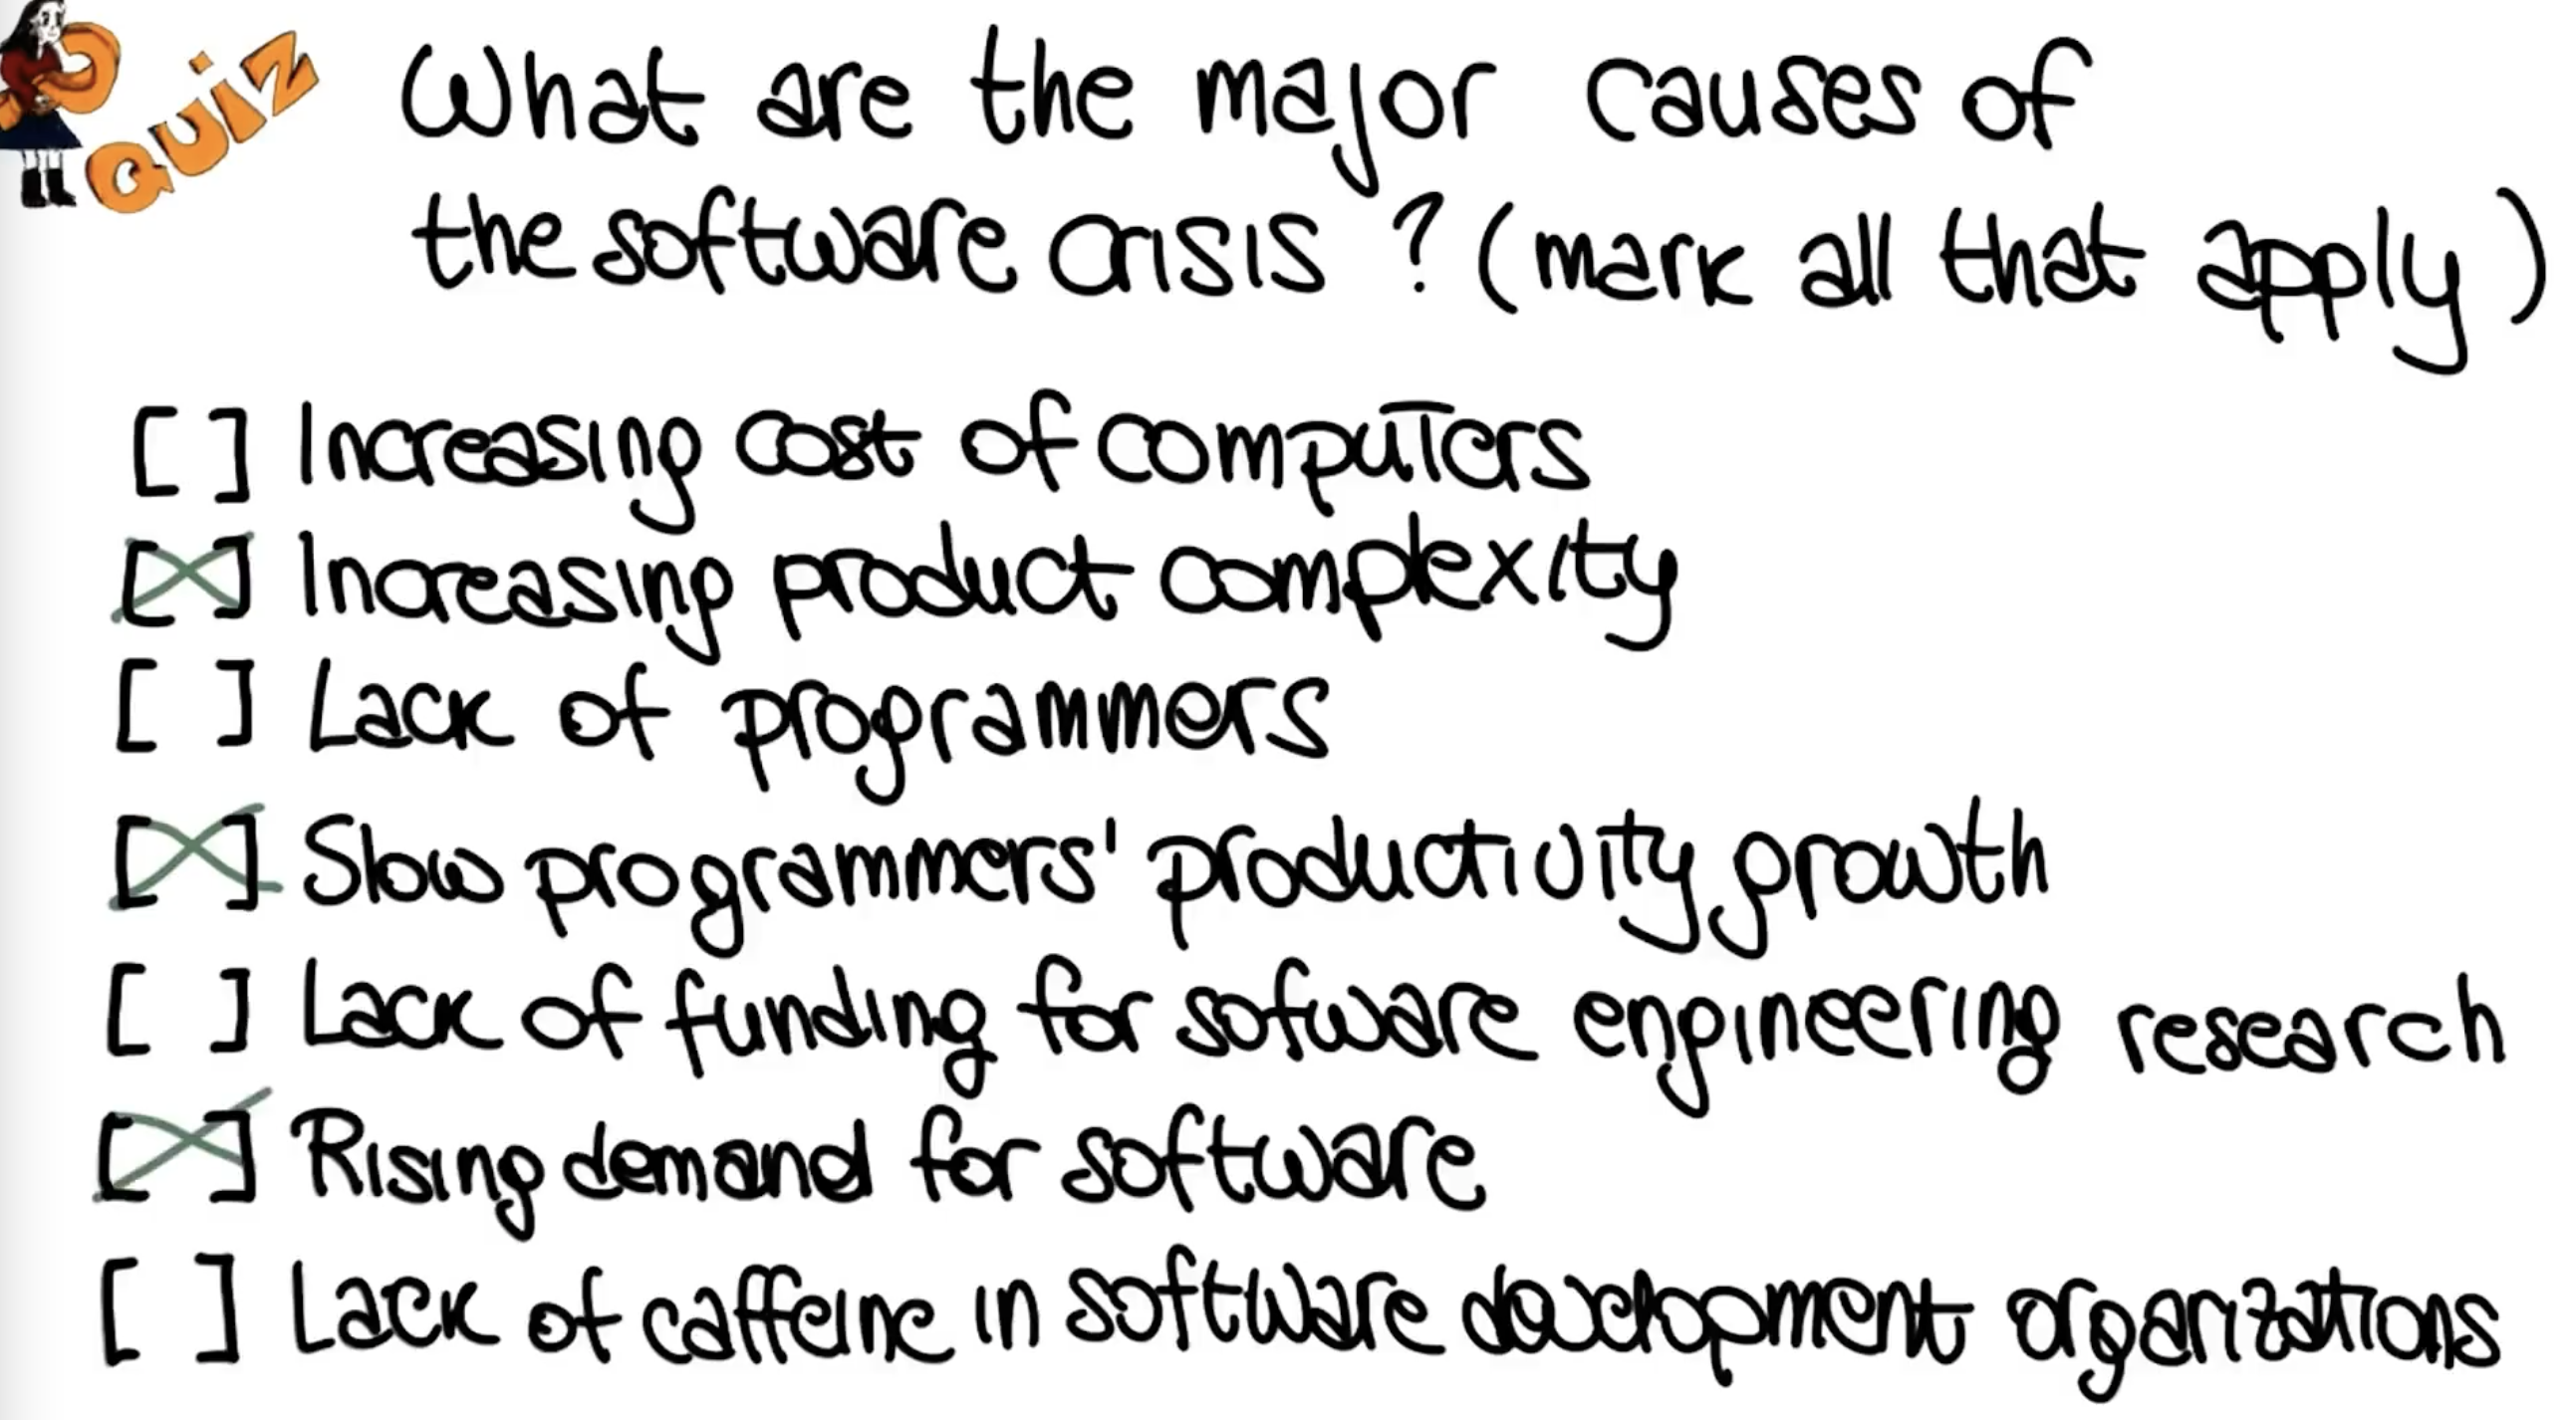 QUIZ
What are the major causes of
the software crisis? (mark all that apply)
[ ] Increasing cost of computers
[X] Increasing product complexity
[ ] Lack of programmers
[X] Slow programmers' productivity growth
[ ] Lack of funding for sofware engineering research
[X] Rising demand for software
[ ] Lack of caffeine in software development organizations